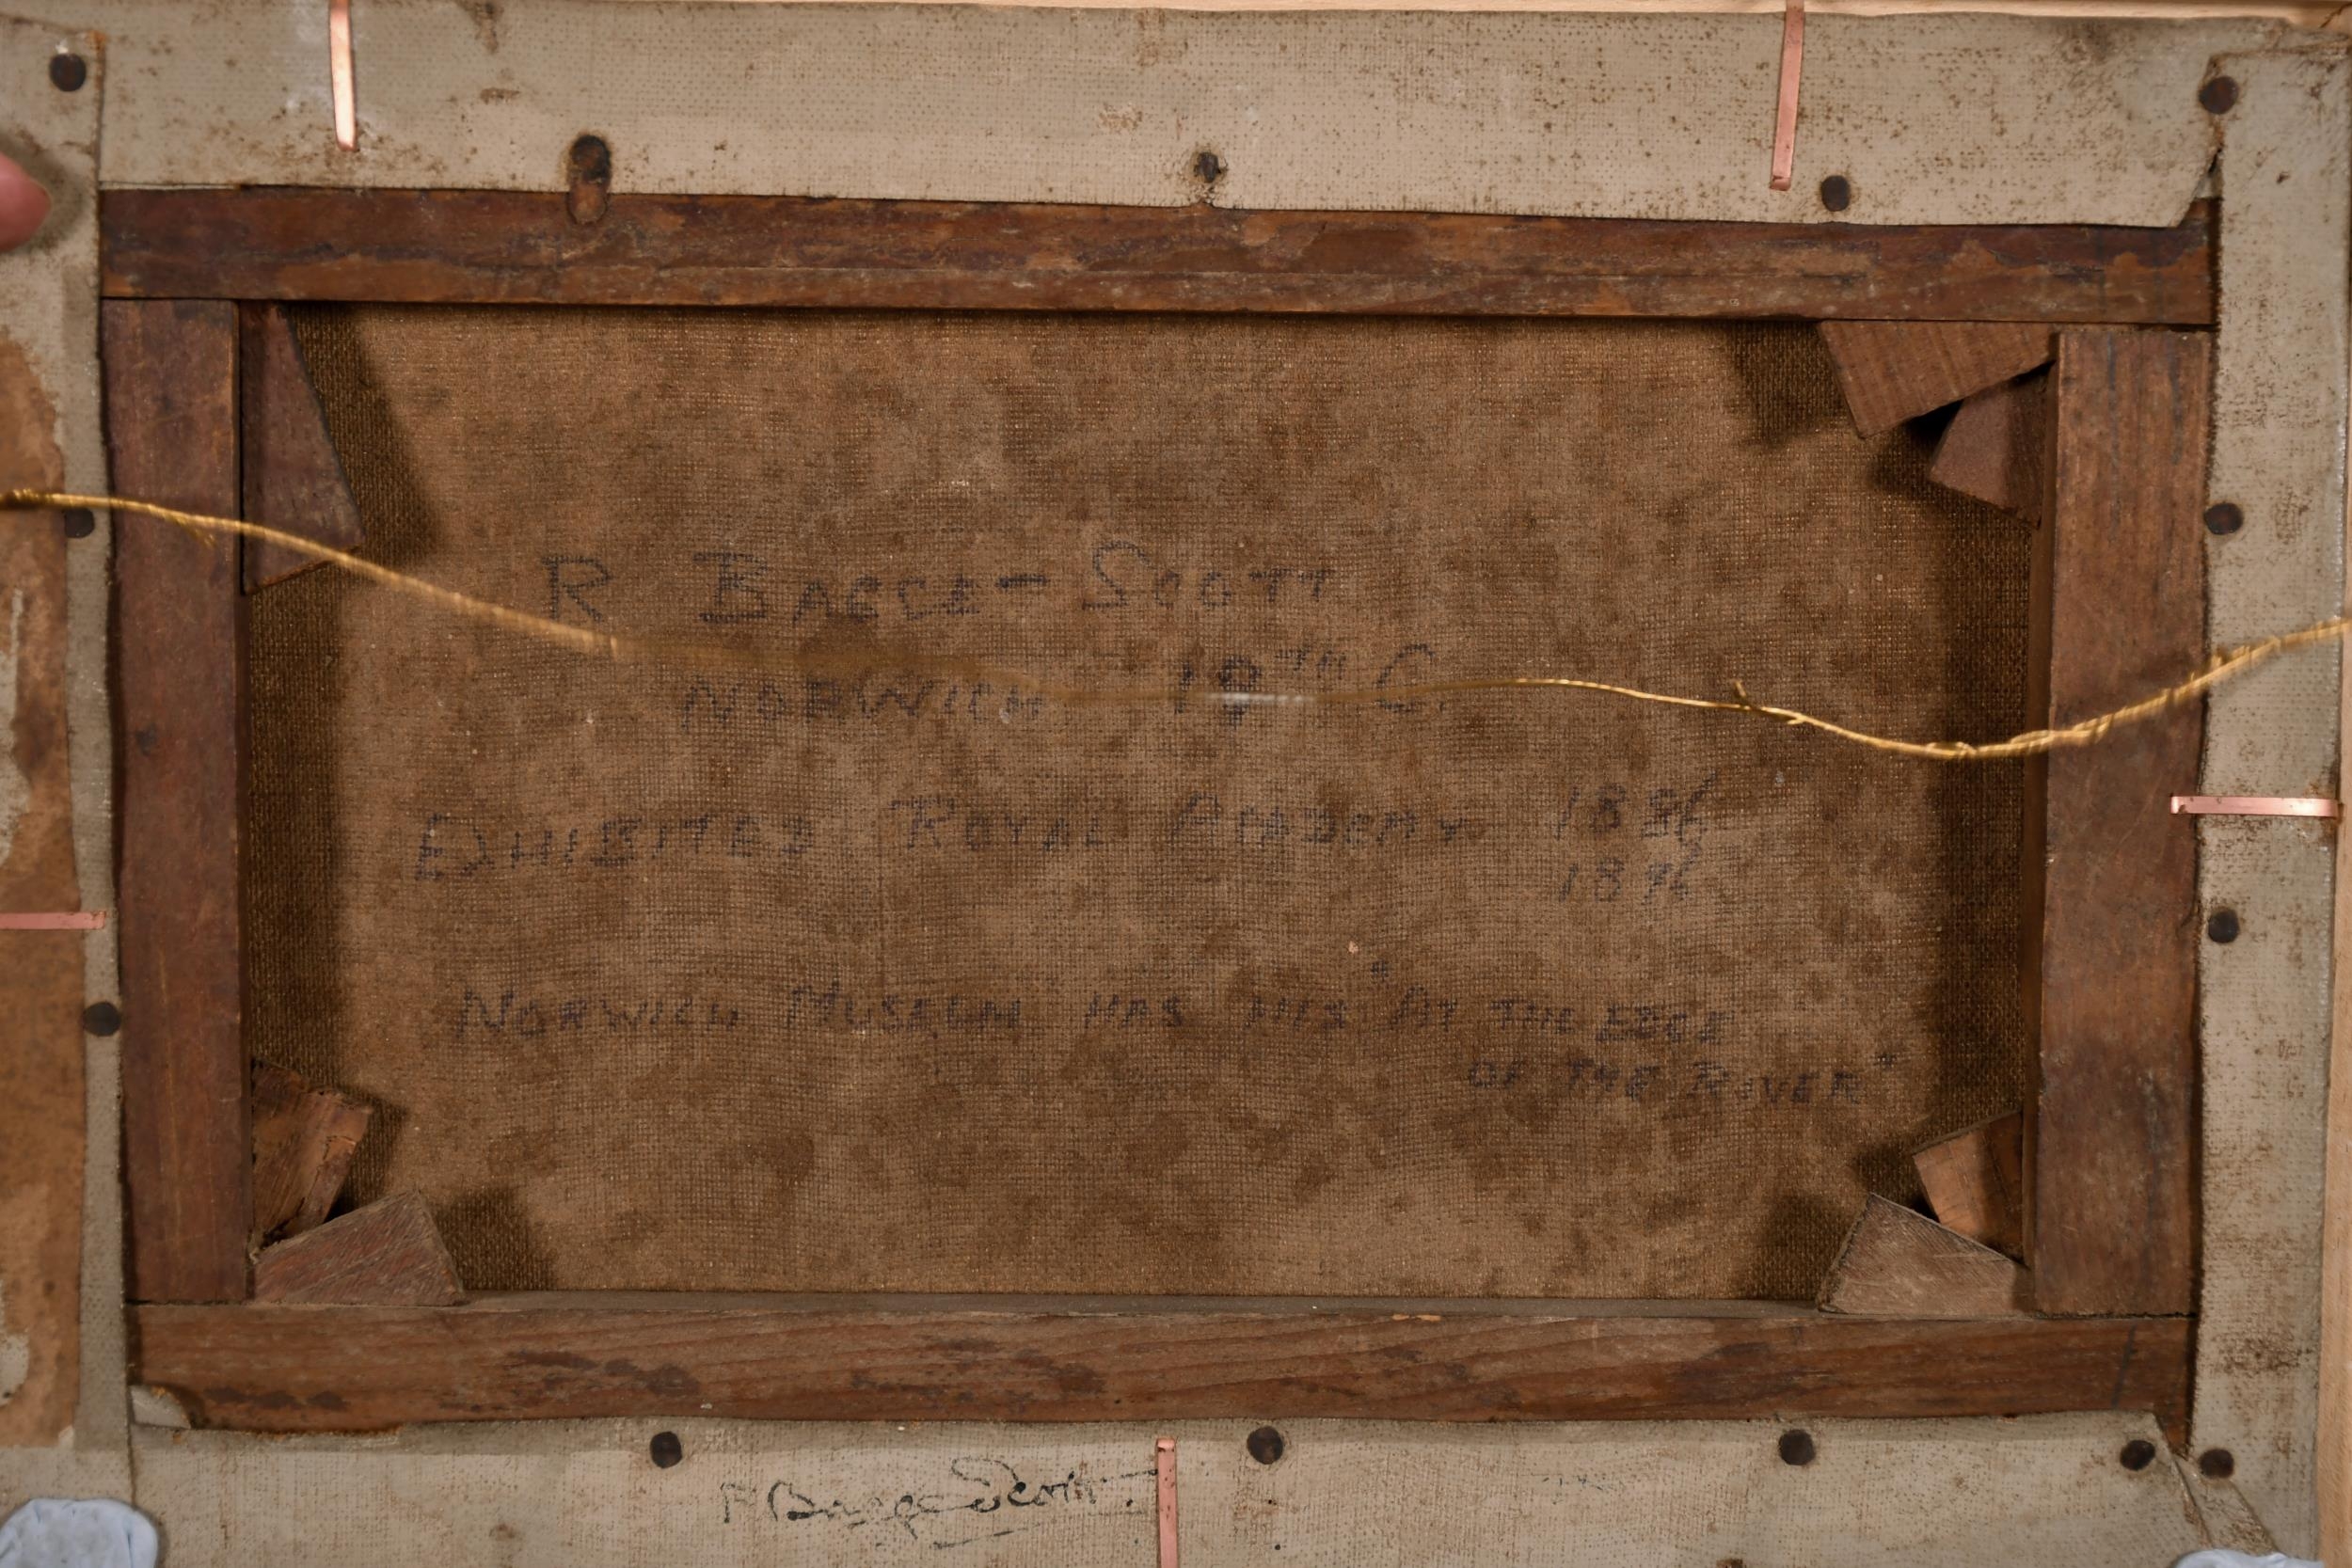 R BAGGE-SCOTT
NORWICH 19TH C.
EXHIBITED ROYAL ACADEMY 1886
1896
NORWICH MUSEUM HAS HIS "AT THE EDGE
OF THE RIVER"
R Bagge Scott.